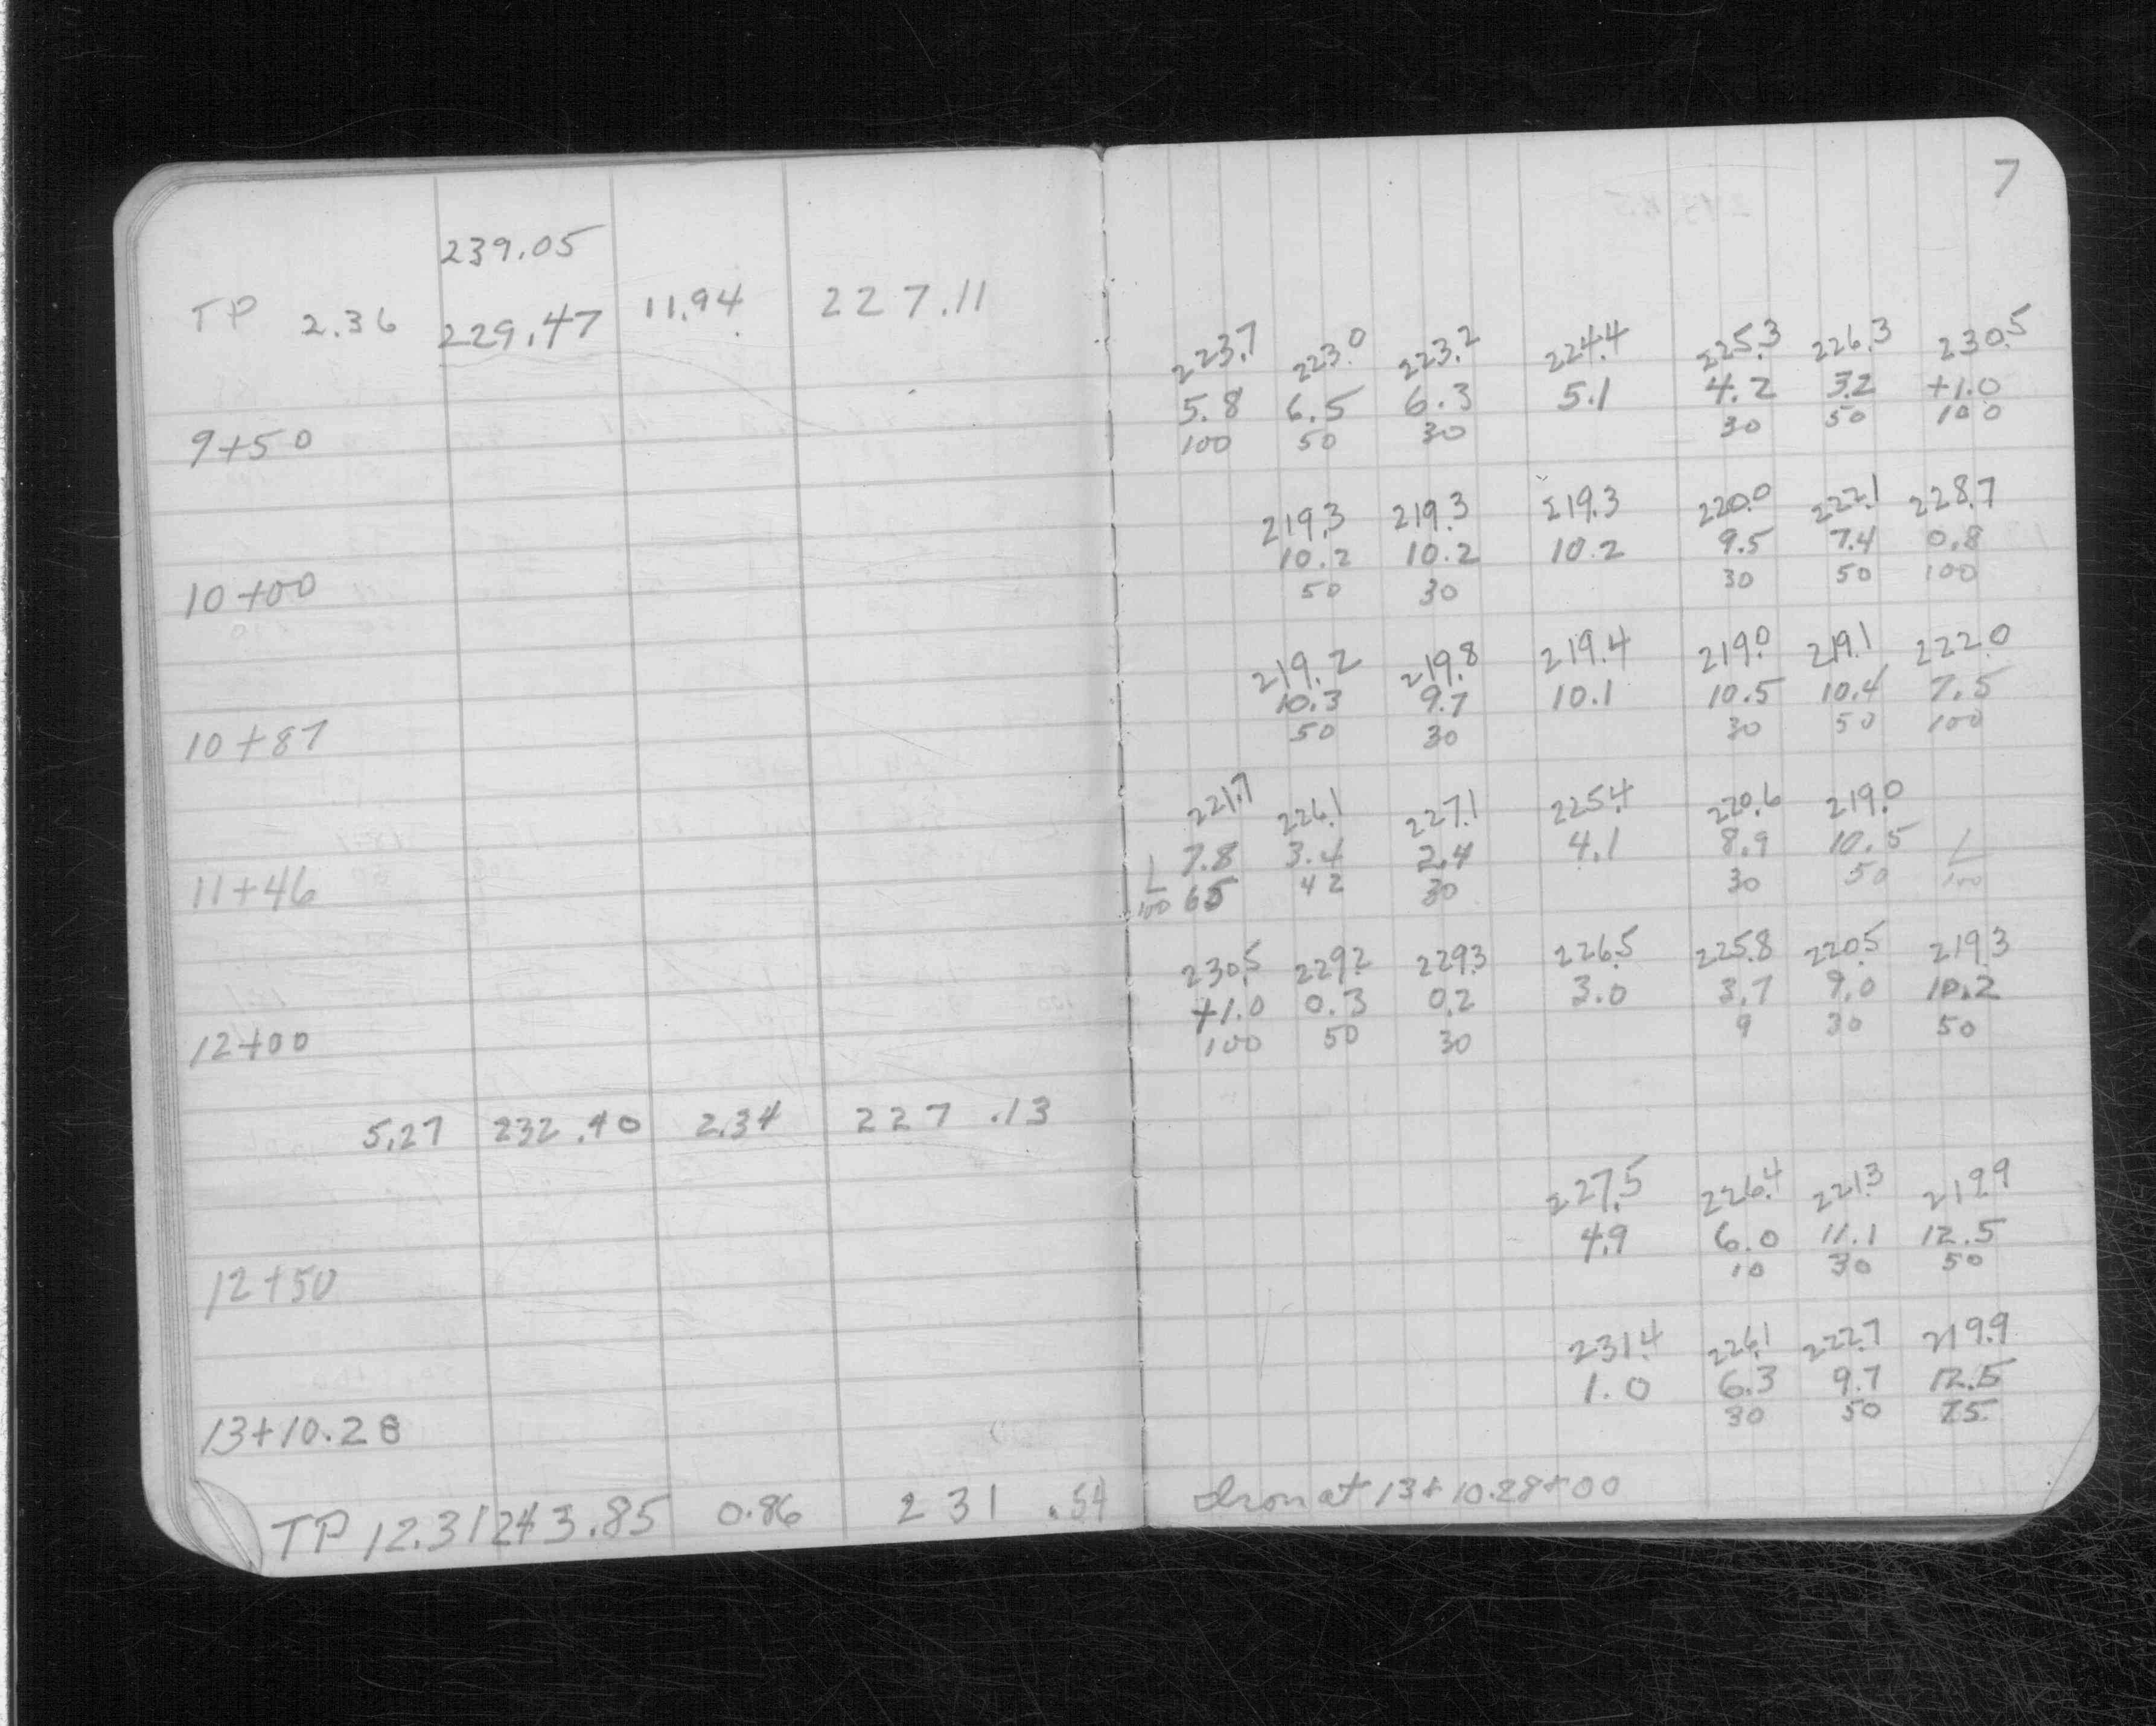 7
239.05
TP 2.36 229.47 11.94 227.11
223.7 223.0 223.2 224.4 225.3 226.3 230.5
5.8 6.5 6.3 5.1 4.2 3.2 +1.0
9+50 100 50 30 30 50 100
219.3 219.3 219.3 220.0 222.1 228.7
10.2 10.2 10.2 9.5 7.4 0.8
10+00 50 30 30 50 100
219.2 219.8 219.4 219.0 219.1 222.0
10.3 9.7 10.1 10.5 10.4 7.5
10+87 50 30 30 50 100
221.7 226.1 227.1 225.4 220.6 219.0
L 7.8 3.4 2.4 4.1 8.9 10.5 L
11+46 100 65 42 30 30 50 100
230.5 229.2 229.3 226.5 225.8 220.5 219.3
+1.0 0.3 0.2 3.0 3.7 9.0 10.2
12+00 100 50 30 9 30 50
5.27 232.40 2.34 227.13
227.5 226.4 221.3 219.9
4.9 6.0 11.1 12.5
12+50 10 30 50
231.4 226.1 222.7 219.9
1.0 6.3 9.7 12.5
13+10.28 30 50 75
TP 12.31 243.85 0.86 231.54 Iron at 13+10.28+00